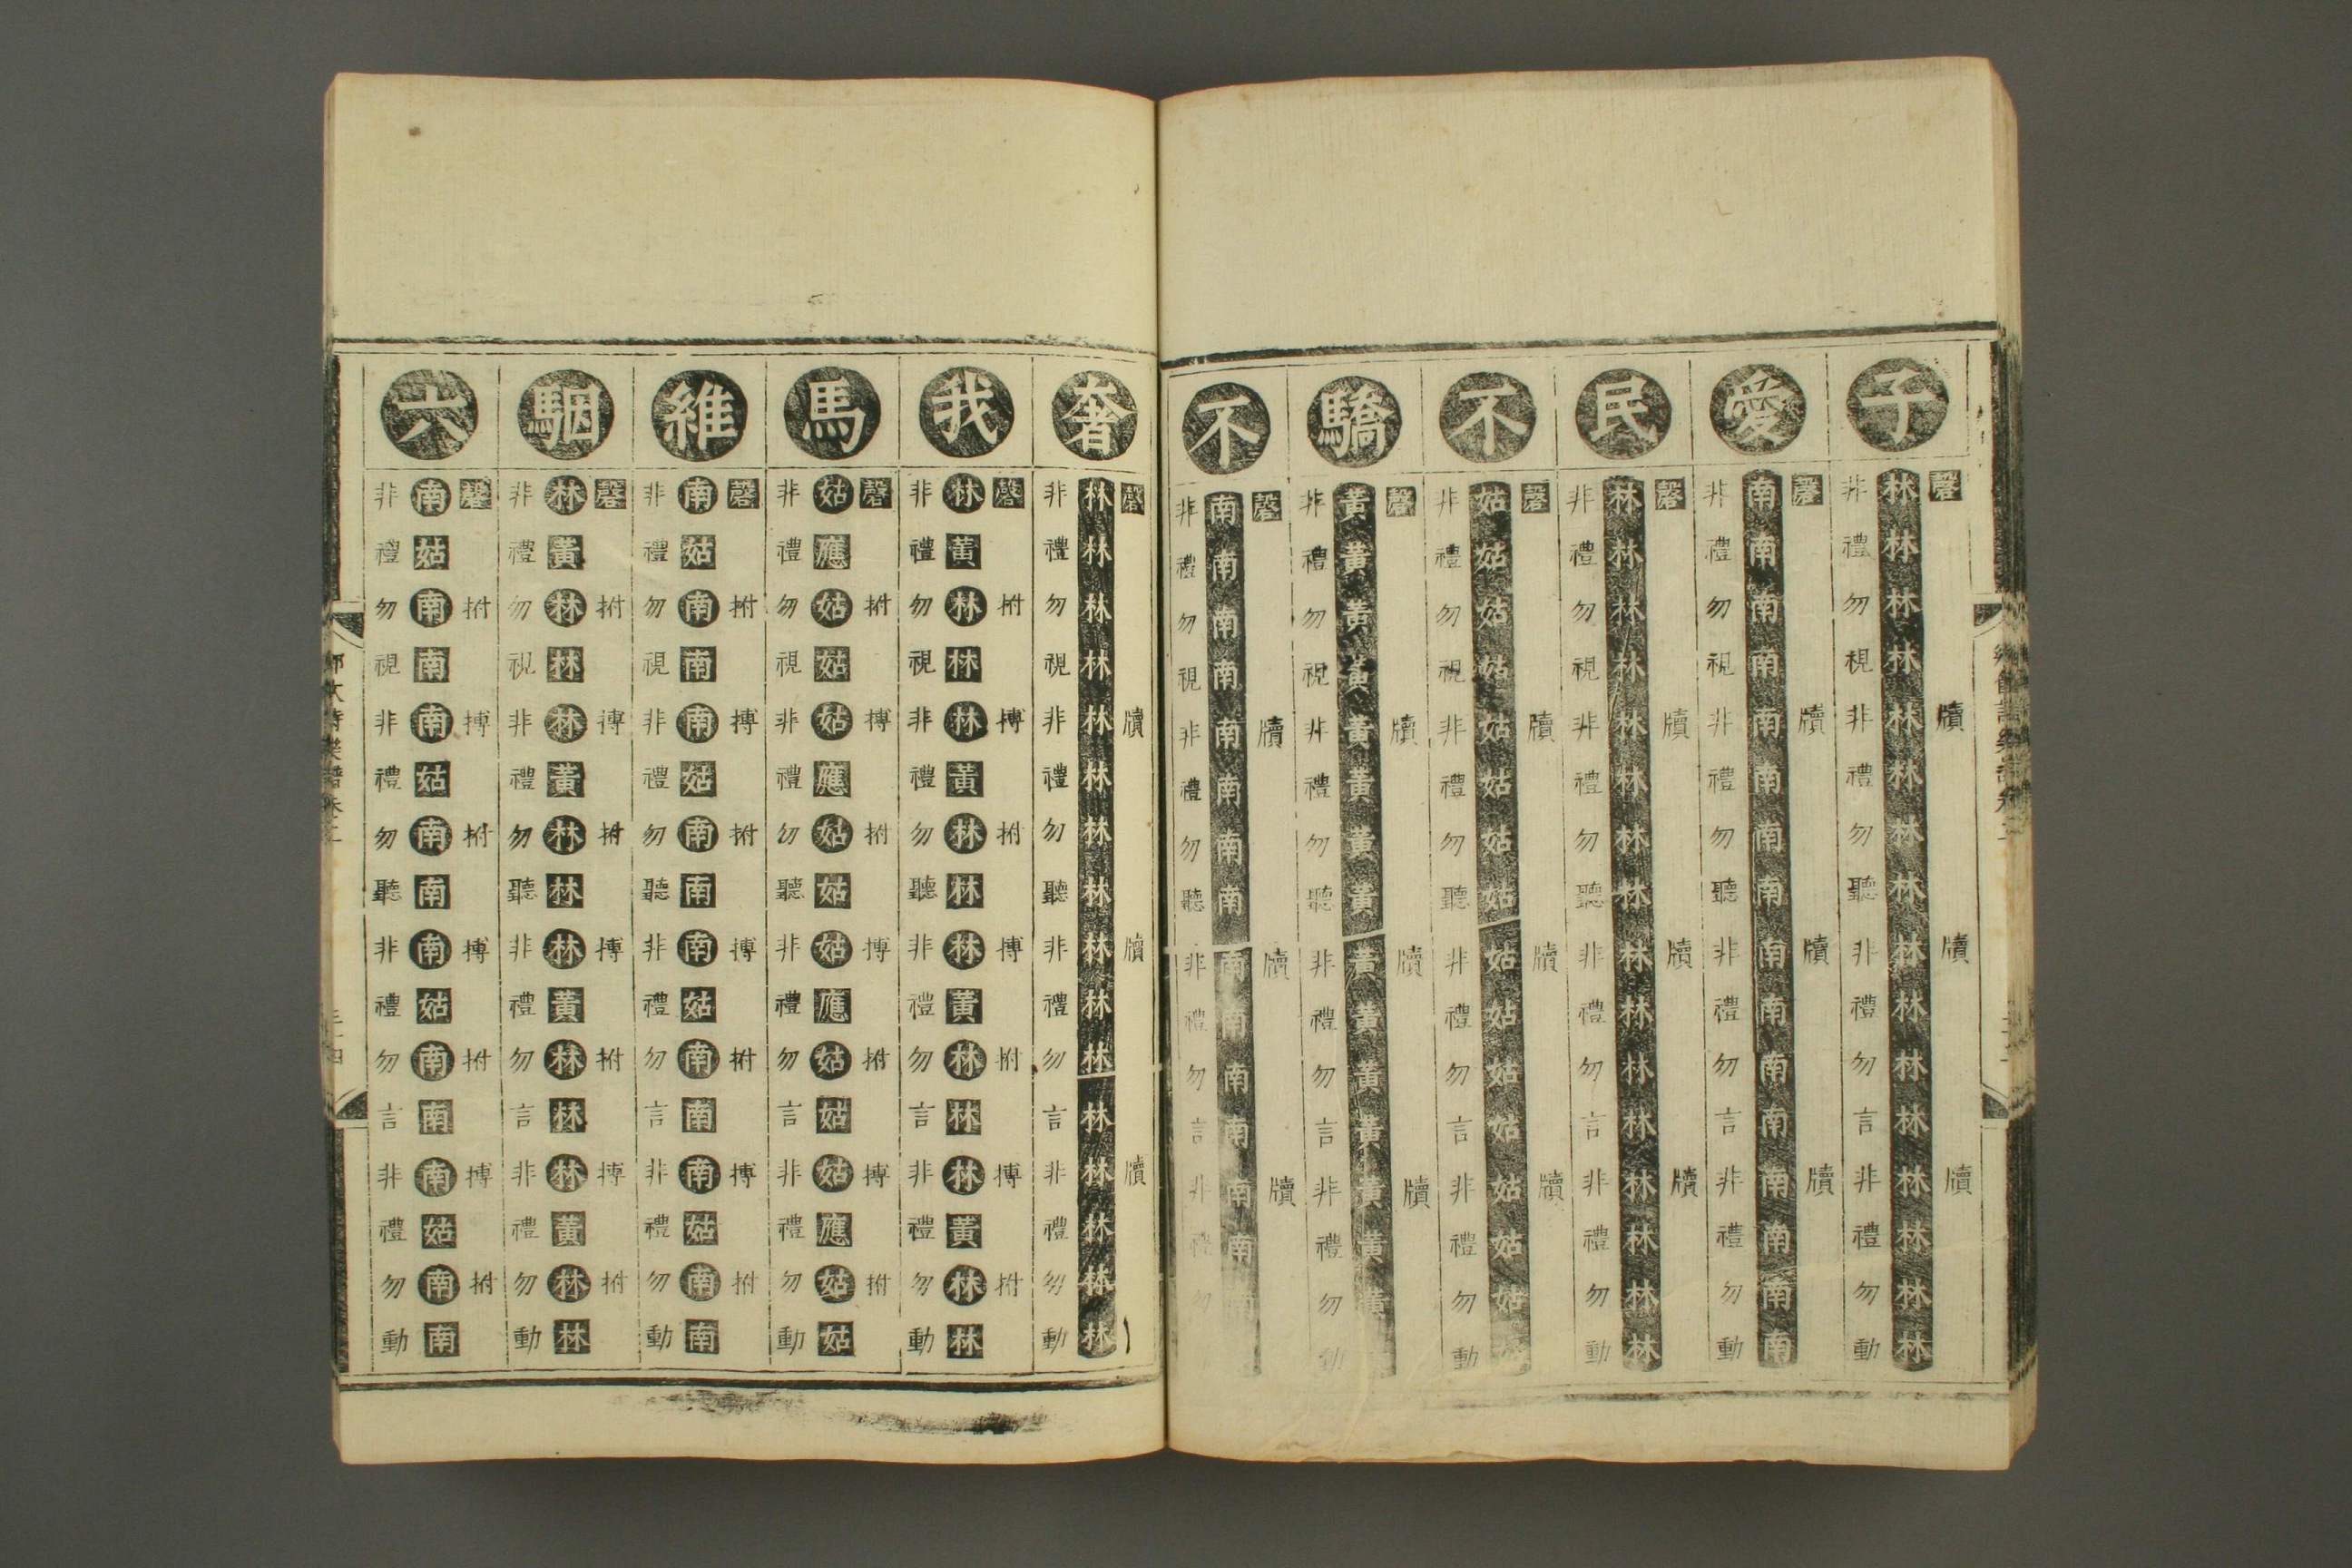 子
磬牘牘牘
林林林林林林林林林林林林林林林林
非禮勿視非禮勿聽非禮勿言非禮勿動
愛
磬牘牘牘
南南南南南南南南南南南南南南南南
非禮勿視非禮勿聽非禮勿言非禮勿動
民
磬牘牘牘
林林林林林林林林林林林林林林林林
非禮勿視非禮勿聽非禮勿言非禮勿動
不
磬牘牘牘
姑姑姑姑姑姑姑姑姑姑姑姑姑姑姑
非禮勿視非禮勿聽非禮勿言非禮勿動
驕
磬牘牘牘
黃黃黃黃黃黃黃黃黃黃黃黃黃黃黃
非禮勿視非禮勿聽非禮勿言非禮勿動
不
磬牘牘牘
南南南南南南南南南南南南南南南
非禮勿視非禮勿聽非禮勿言非禮勿
奢
磬牘牘牘
林林林林林林林林林林林林林林林林
非禮勿視非禮勿聽非禮勿言非禮勿動
我
磬拊搏拊搏拊搏拊
林黃林林林黃林林林黃林林林黃林林
非禮勿視非禮勿聽非禮勿言非禮勿動
馬
磬拊搏拊搏拊搏拊
姑應姑姑姑應姑姑姑應姑姑姑應姑姑
非禮勿視非禮勿聽非禮勿言非禮勿動
維
磬拊搏拊搏拊搏拊
南姑南南南姑南南南姑南南南姑南南
非禮勿視非禮勿聽非禮勿言非禮勿動
駰
磬拊搏拊搏拊搏拊
林黃林林林黃林林林黃林林林黃林林
非禮勿視非禮勿聽非禮勿言非禮勿動
六
磬拊搏拊搏拊搏拊
南姑南南南姑南南南姑南南南姑南南
非禮勿視非禮勿聽非禮勿言非禮勿動
詩樂譜卷